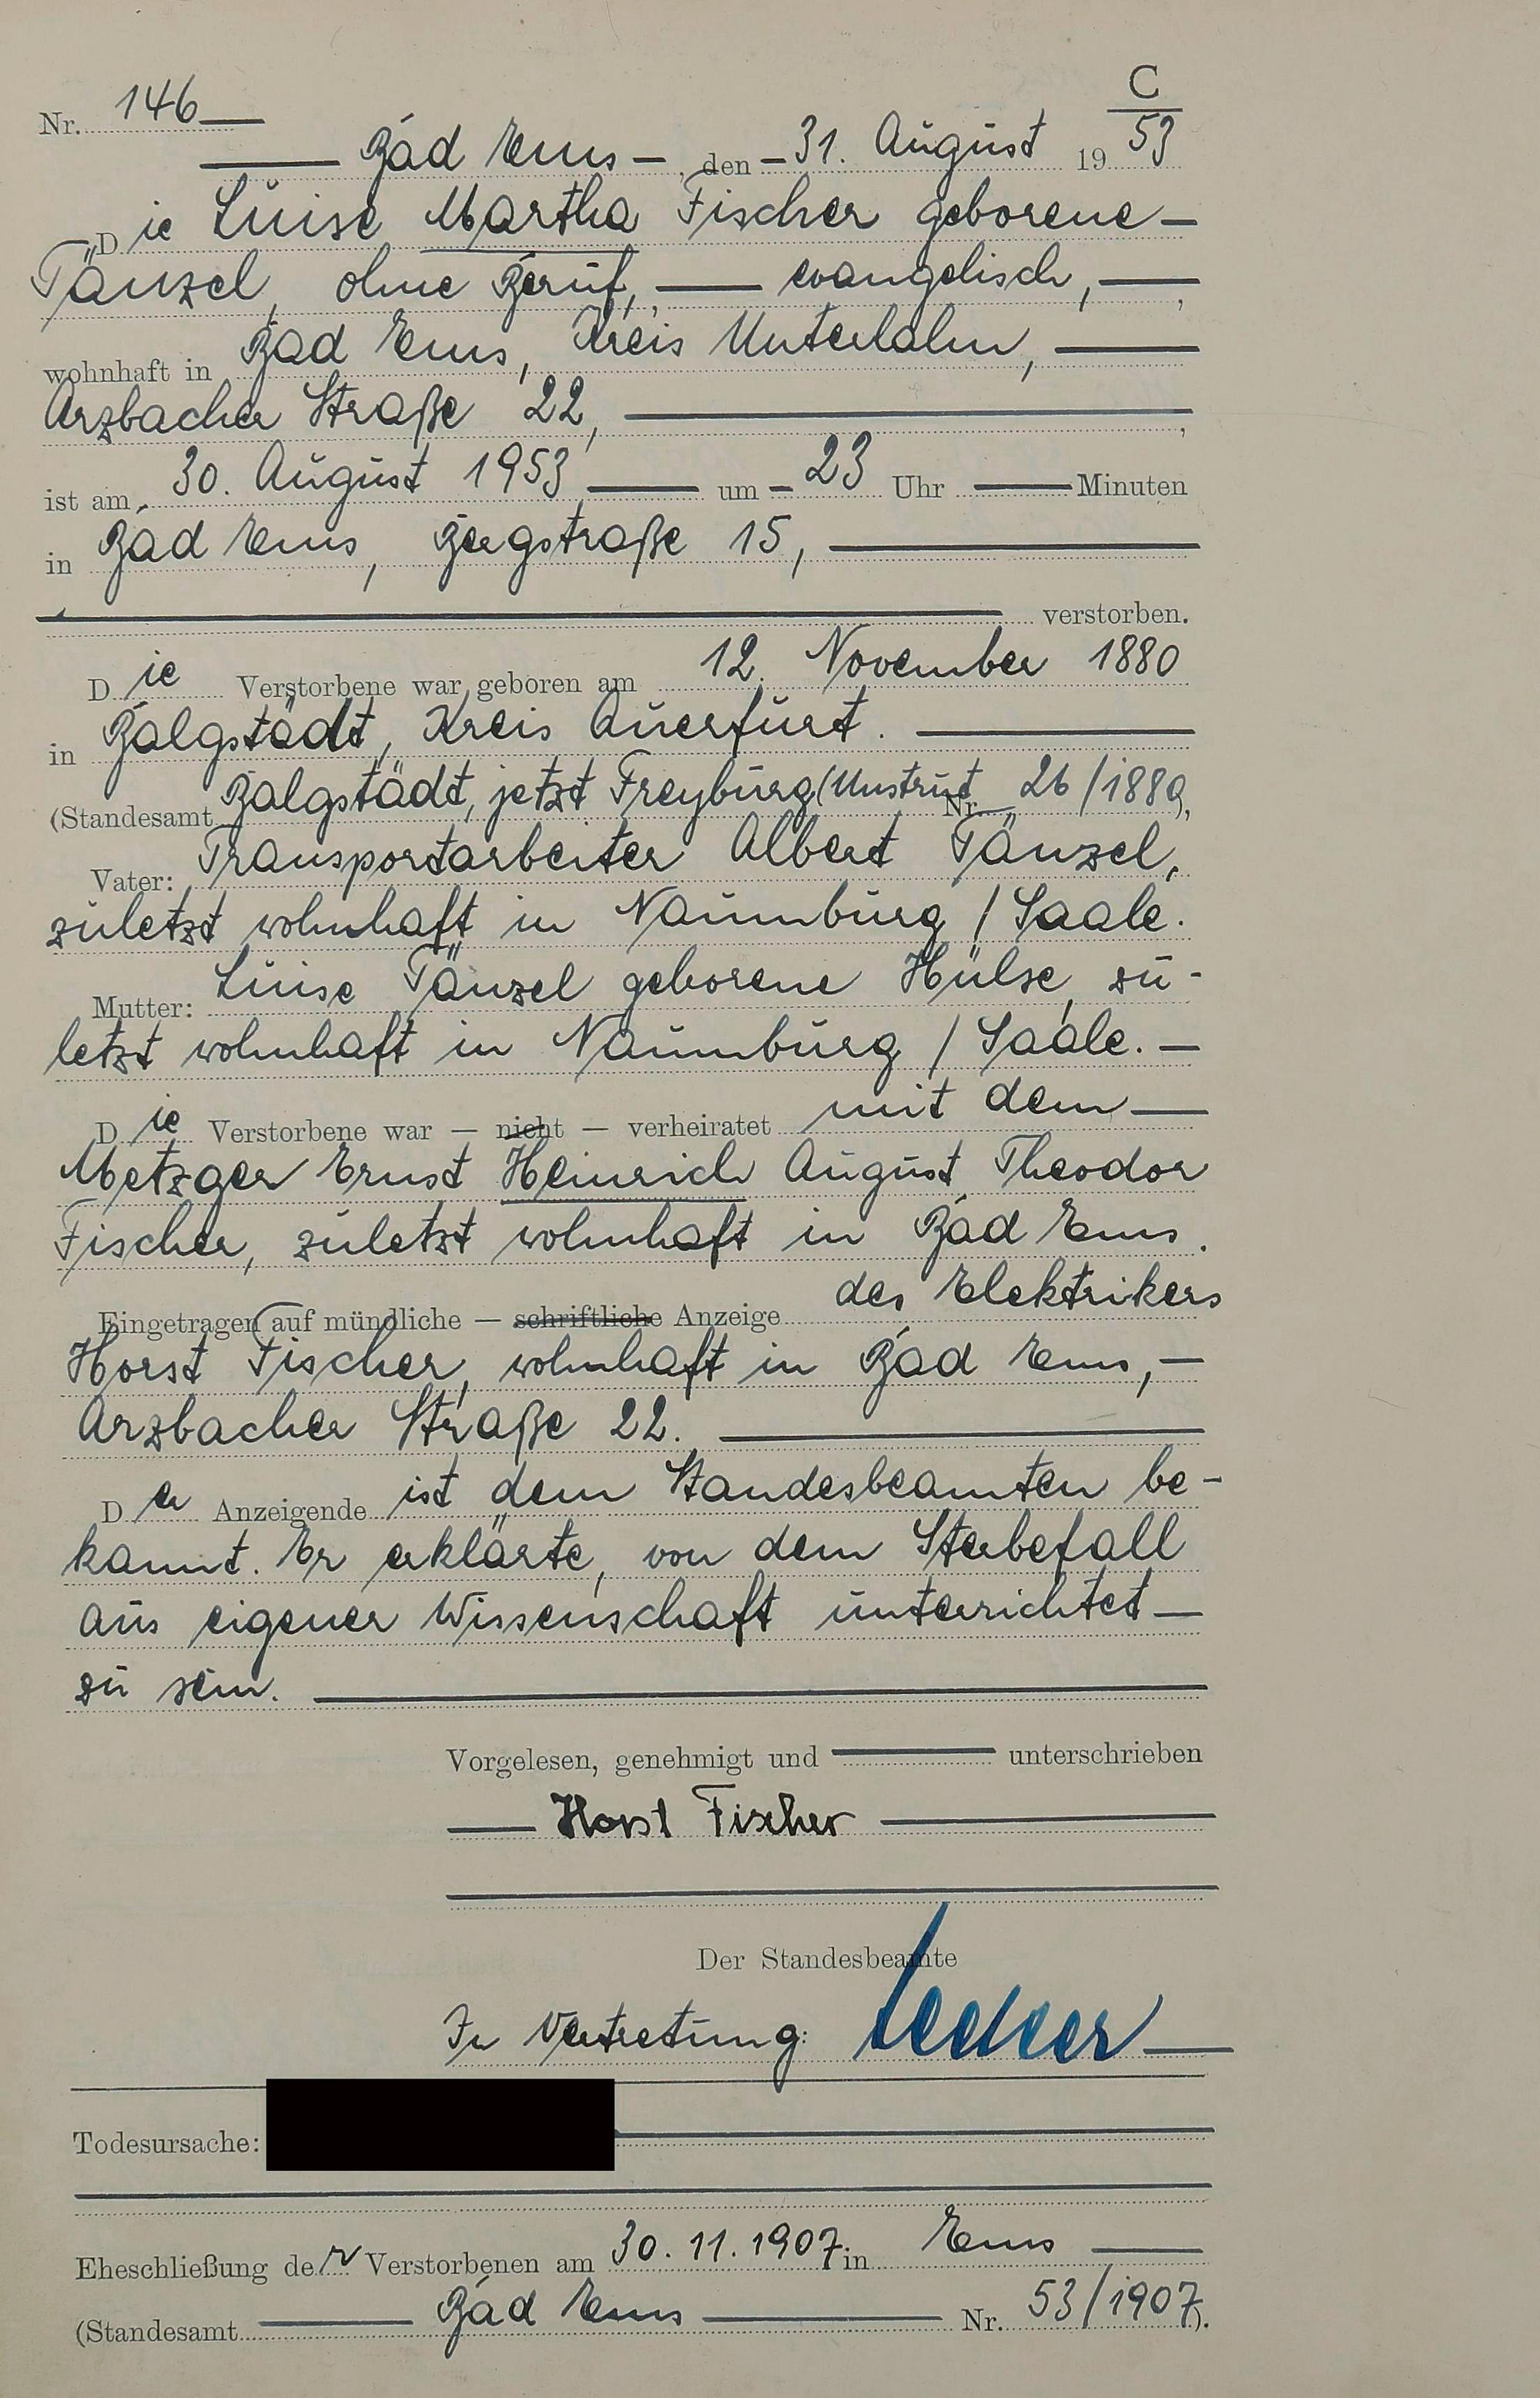 C
Nr. 146
Bad Ems, den 31. August 1953
Die Luise Martha Fischer geborene
Tänzel, ohne Beruf, evangelisch,
wohnhaft in Bad Ems, Kreis Unterlahn,
Arzbacher Straße 22,
ist am 30. August 1953 um 23 Uhr Minuten
in Bad Ems, Bergstraße 15,
verstorben.
Die Verstorbene war geboren am 12. November 1880
in Balgstädt, Kreis Querfurt.
(Standesamt Balgstädt, jetzt Freyburg/Unstrut Nr. 26/1880),
Vater: Transportarbeiter Albert Tänzel,
zuletzt wohnhaft in Naumburg / Saale.
Mutter: Luise Tänzel geborene Hülse, zu-
letzt wohnhaft in Naumburg / Saale. —
Die Verstorbene war — nicht — verheiratet mit dem
Metzger Ernst Heinrich August Theodor
Fischer, zuletzt wohnhaft in Bad Ems.
Eingetragen auf mündliche — schriftliche Anzeige des Elektrikers
Horst Fischer, wohnhaft in Bad Ems, —
Arzbacher Straße 22.
Der Anzeigende ist dem Standesbeamten be-
kannt. Er erklärte, von dem Sterbefall
aus eigener Wissenschaft unterrichtet
zu sein.
Vorgelesen, genehmigt und unterschrieben
Horst Fischer
Der Standesbeamte
In Vertretung:
Todesursache:
Eheschließung der Verstorbenen am 30.11.1907 in Ems
(Standesamt Bad Ems Nr. 53/1907).